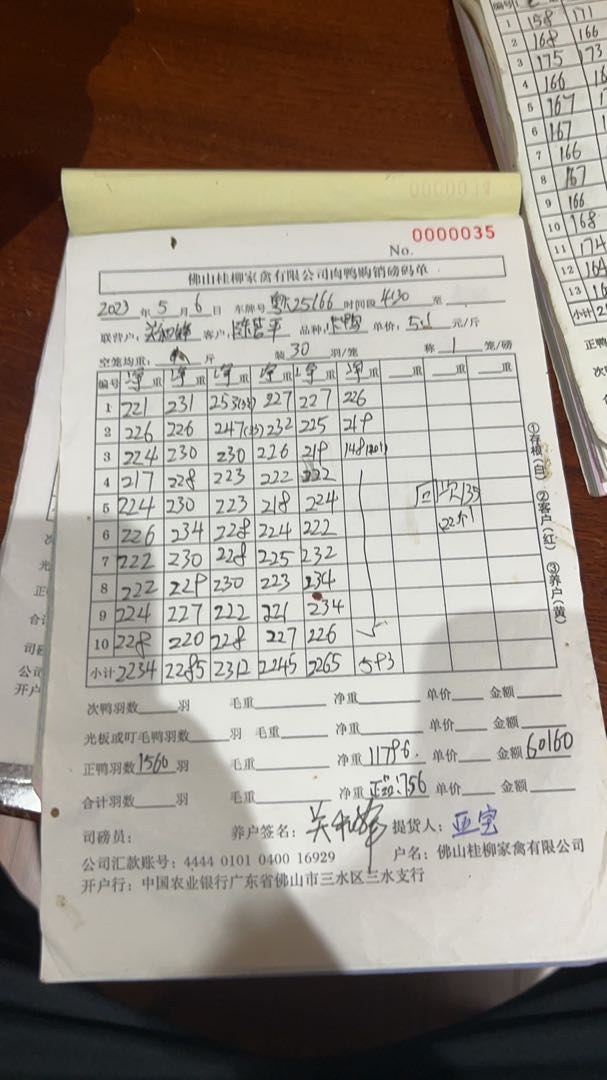 0000035
No.
佛山桂柳家禽有限公司肉鸭购销磅码单
2023年5月6日 车牌号 25166 时间段 4:30 至
联营户: 客户: 品种: 单价: 5.1 元/斤
空笼均重: 斤 装30羽/笼 称1笼/磅
编号 重 重 重 重 重 重 重 重 重
1 221 231 253(33) 227 227 226
2 226 226 247(33) 232 225 219
3 224 230 230 226 219 148(20)
4 217 228 223 222 222
5 224 230 223 218 224
6 226 234 228 224 222
7 222 230 228 225 232
8 222 229 230 223 234
9 224 227 222 221 234
10 228 220 228 227 226
小计 2234 2285 2312 2245 2265 593
①存根(白) ②客户(红) ③养户(黄)
次鸭羽数 羽 毛重 净重 单价 金额
光板或叮毛鸭羽数 羽 毛重 净重 单价 金额
正鸭羽数1560羽 毛重 净重11796. 单价 金额60160
合计羽数 羽 毛重 净重 7.56 单价 金额
司磅员: 养户签名: 提货人:
公司汇款账号: 4444 0101 0400 16929 户名: 佛山桂柳家禽有限公司
开户行: 中国农业银行广东省佛山市三水区三水支行
编号
1 158 171
2 168 166
3 175 173
4 166
5 167
6 167
7 166
8 167
9 166
10 168
11 174
12 164
13
小计